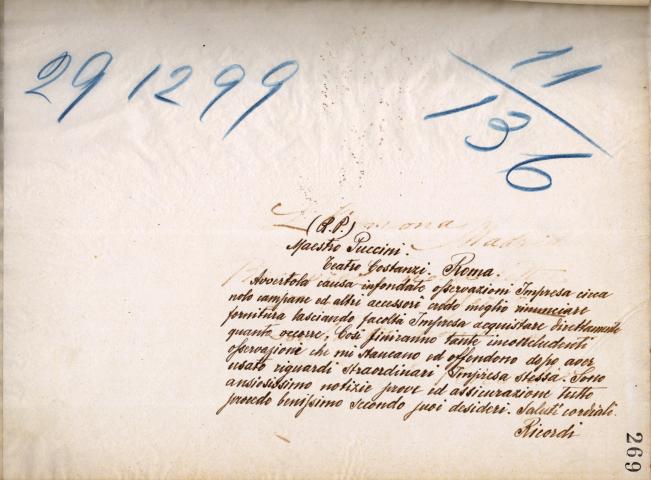 29 12 99
11
136
(R.P.)
Maestro Puccini.
Teatro Costanzi. Roma.
Avvertola causa infondate osservazioni Impresa circa
nolo campane ed altri accessori credo meglio rinunciare
fornitura lasciando facoltà Impresa acquistare direttamente
quanto occorre. Così finiranno tante inconcludenti
osservazioni che mi stancano ed offendono dopo aver
usato riguardi straordinari Impresa stessa. Sono
ansiosissimo notizie prove ed assicurazione tutto
procedo benissimo secondo suoi desideri. Saluti cordiali.
Ricordi
269